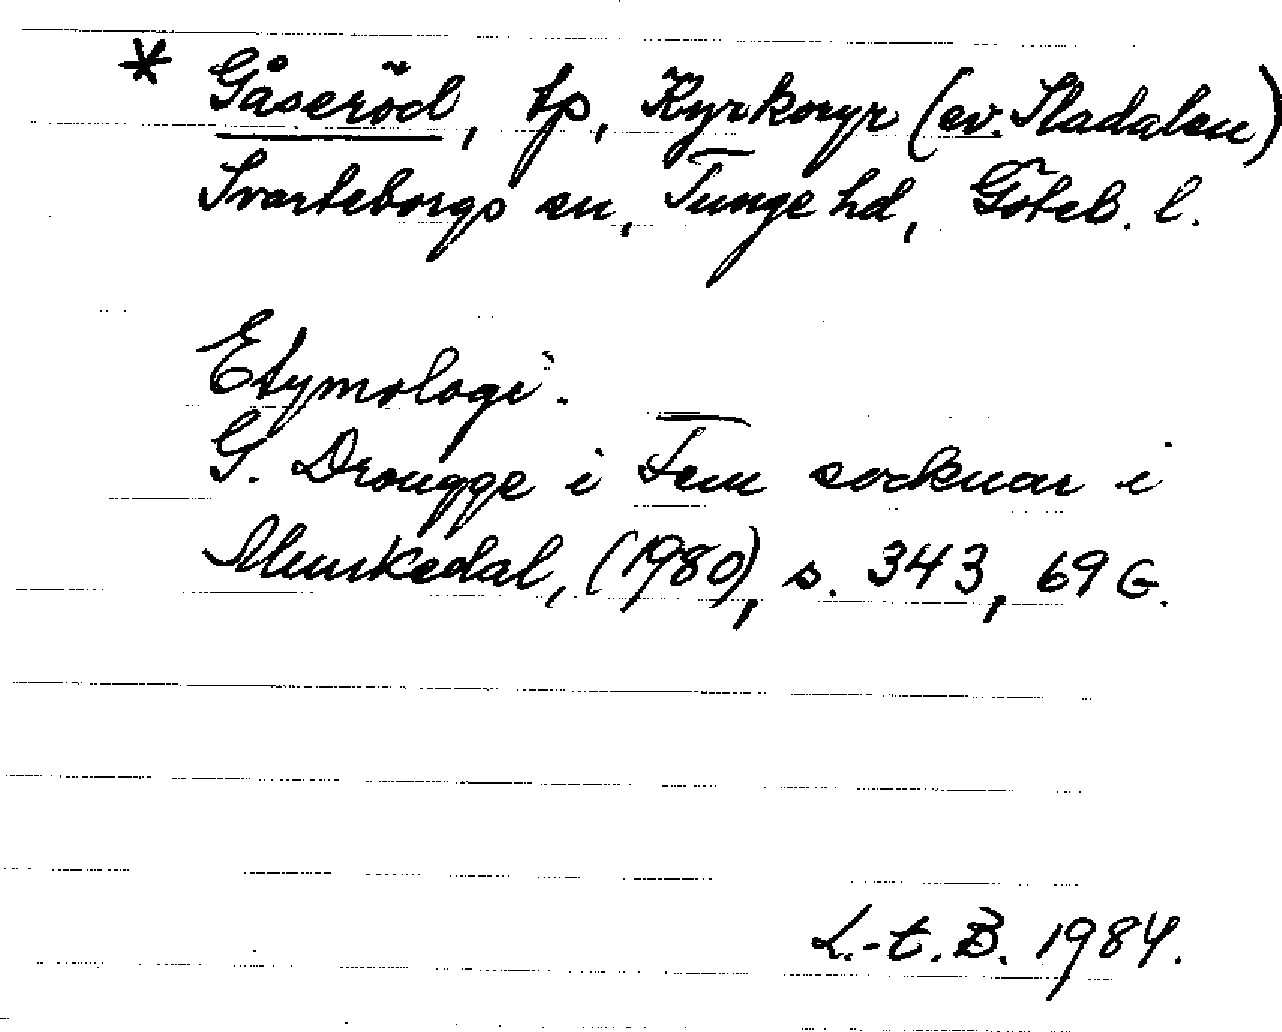 * Gåseröd, tp, Kyrkoryr (ev. Sladalen)
Svarteborgs sn, Tunge hd, Göteb. l.
Etymologi.
G. Drougge i Fem socknar i
Munkedal, (1980), s. 343, 69 G.
L.-t. B. 1984.